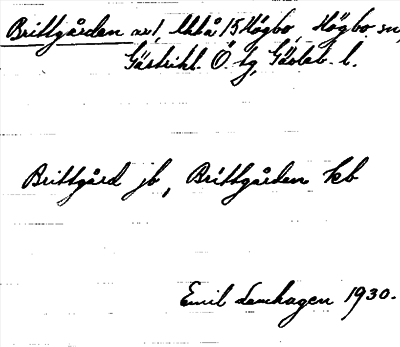 Brittgården nr 1, Utbå 15 Högbo, Högbo sn,
Gästrikl. Ö. tg, Gävleb. l.
Brittgård jb, Brittgården kb
Emil Lenhagen 1930.